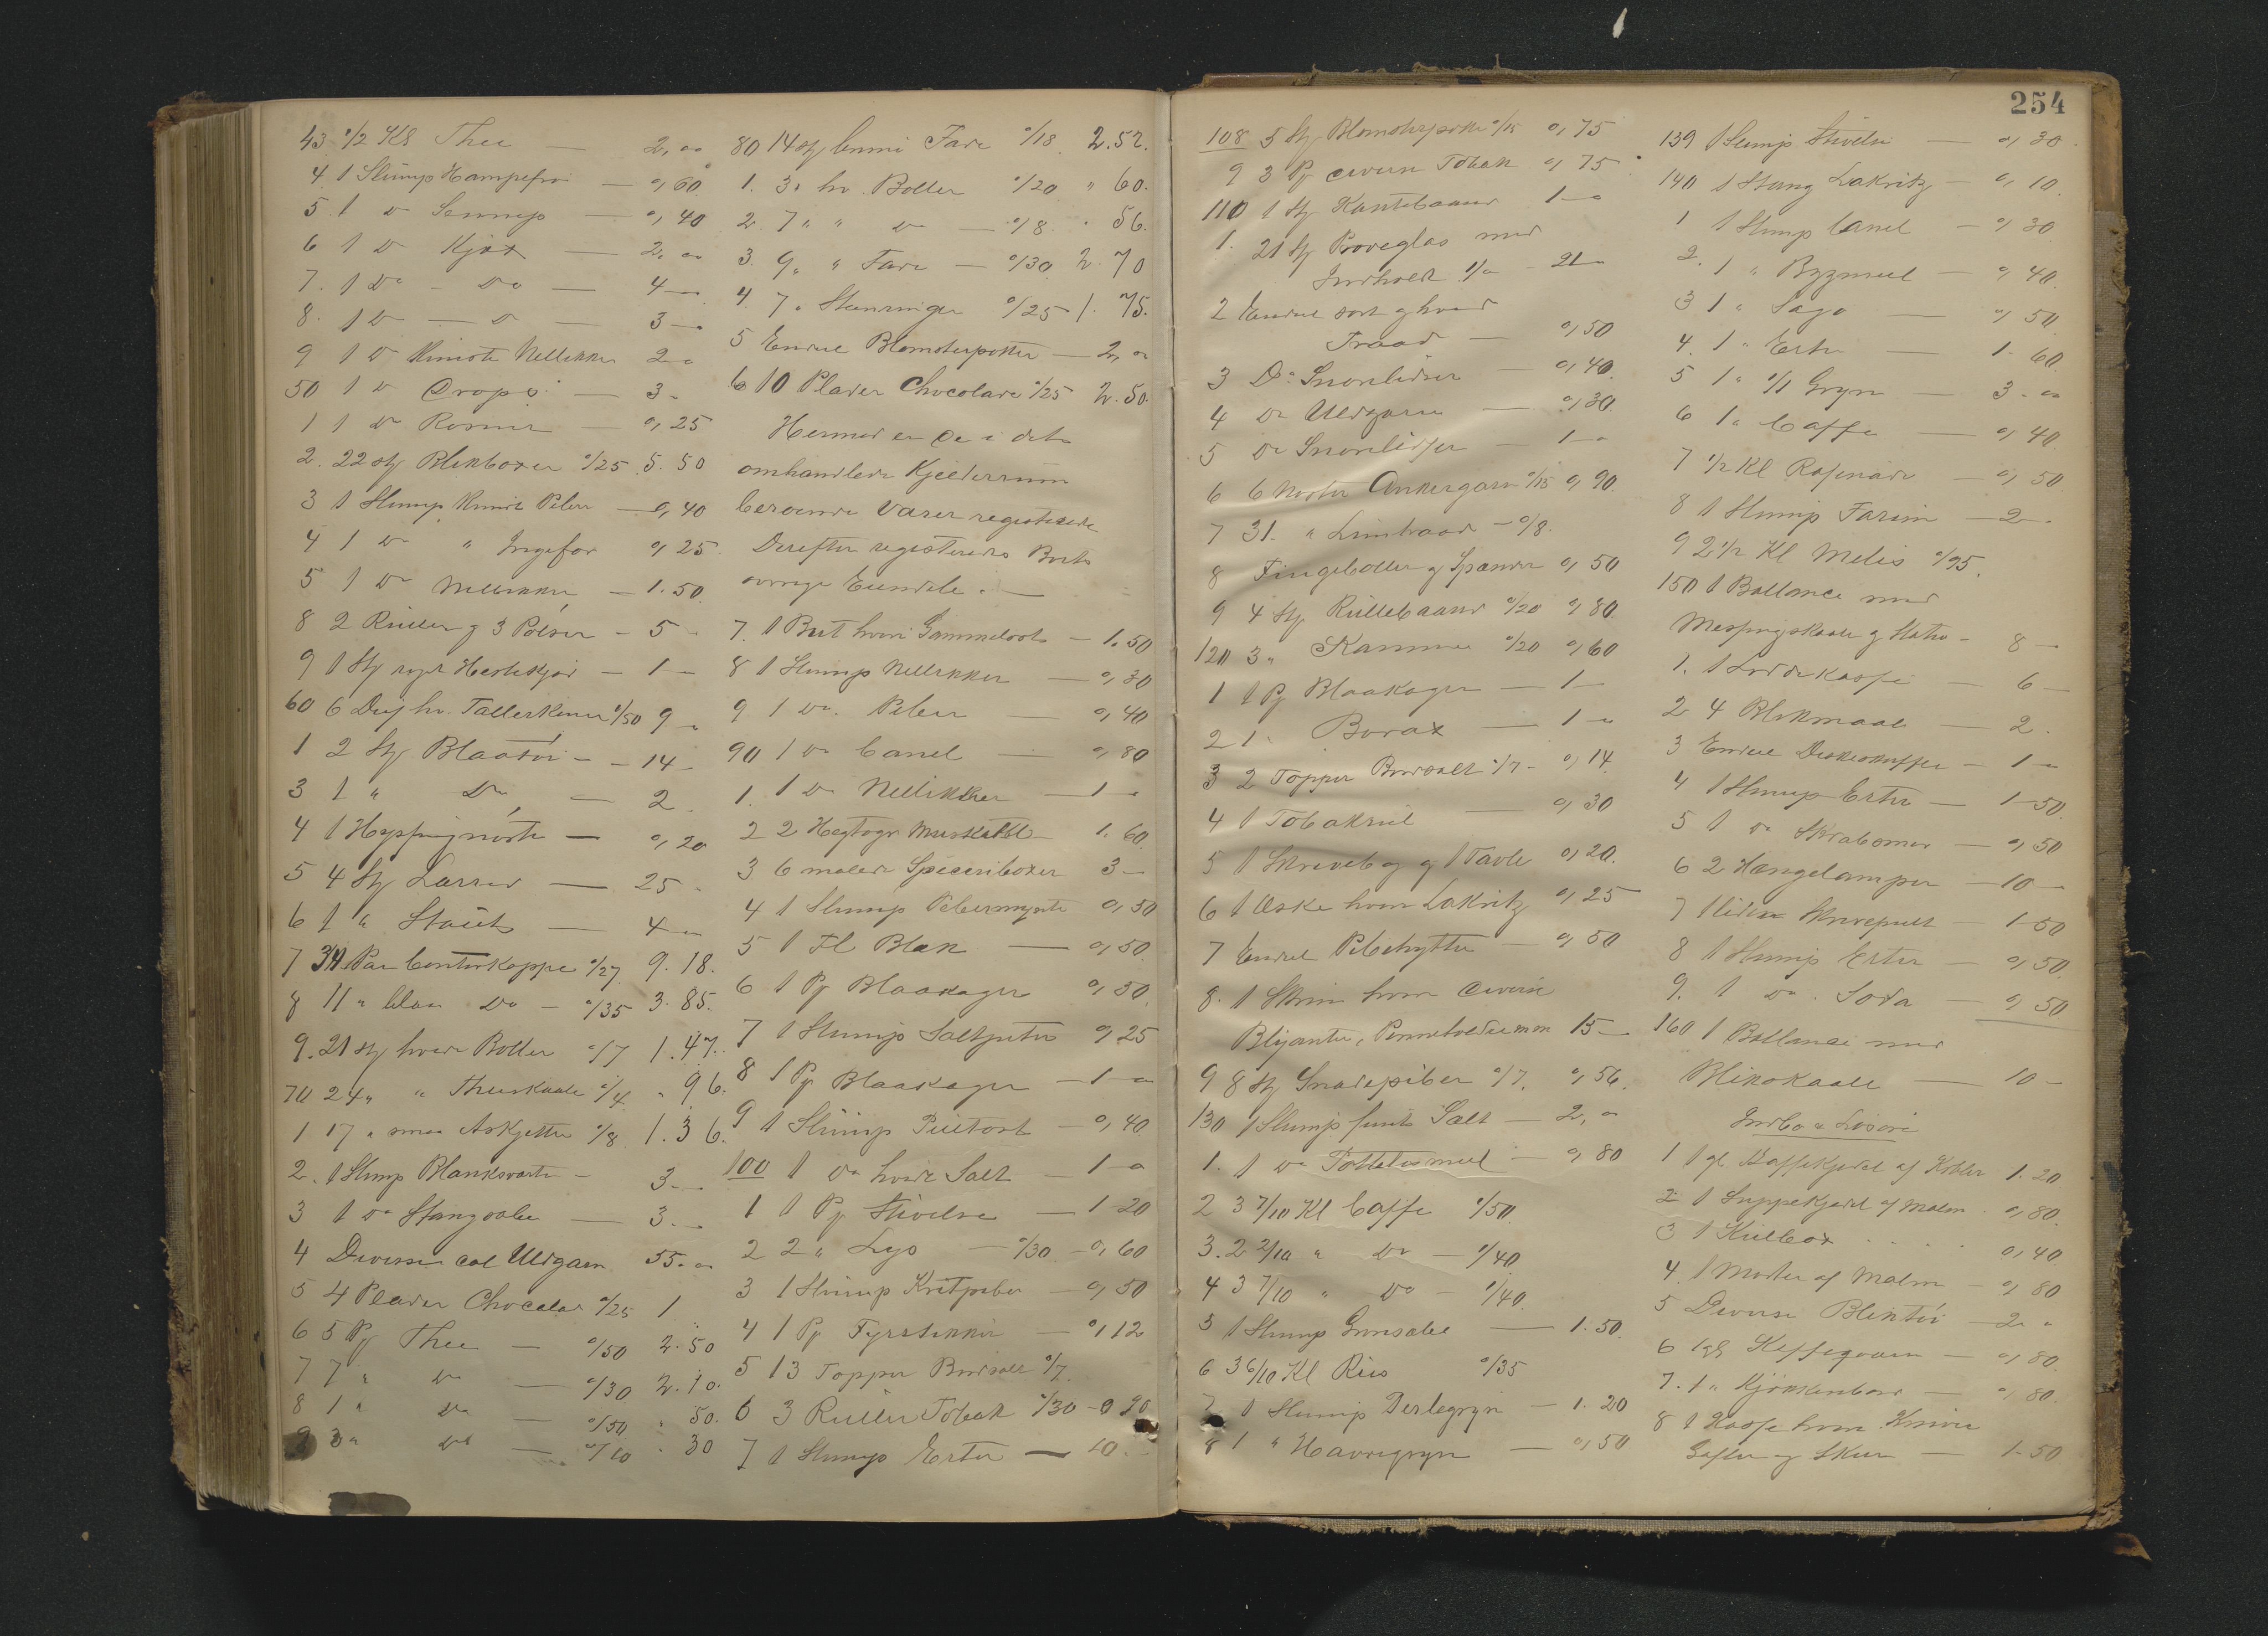 43 1/2 Kl Thee — 2,00
4 1 Slump Hampefrö — 0,60
5 1 Do Sennep — 0,40
6 1 Do Kjæx — 2,00
7. 1 Do - Do — 4 —
8. 1 Do — Do — 3 —
9 1 Do Nellikker 2 -
50 1 Do Drops — 3 -
1 1 Do Rosiner — 0,25
2. 22 stk Blikboxer 0/25 5.50
3 1 Slump Peber — 0,40
4 1 Do " Ingefær 0,25
5 1 Do Nellikker — 1.50
8 2 Ruller og 3 Pølser - 5 -
9 1 Stk — 1 —
60 6 Dus hv. Tallerkener 1/50 9 -
1 2 Stk Blaatöi - - 14 -
3 1 " Do — 2 -
4 1 — 0,20
5 4 Stk Lærred — 25 -
6 1 " Stouts — 4 —
7 34 Par Contorkopper 0/27 9.18.
8 11 " blaa Do - 0/35 3.85.
9. 21 stk hvide Boller 0/7 1.47.
70 24 " " Theeskaale 0/4 " 96.
1 17 " smaa Askjetter 0/8 1.36.
2. 1 Slump Blanksværte - 3.—
3 1 Do Stangsabe — 3.—
4 Diverse col Uldgarn 55.00
5 4 Plader Chocolade 0/25 1
6 5 Pk Thee — 0/50 2.50
7 7 " Do — 0/30 2.10.
8 1 " Do — 0/50 " 50.
9 3 " Do — 0/10 " 30
80 14 stk Fade 0/18 2.52.
1. 3 " hv. Boller 0/20 " 60.
2. 7 " " Do — 0/8 " 56.
3. 9 " " Fade — 0/30 2.70
4 7 " 0/25 1.75.
5 Endeel Blomsterpotter — 2,00
6 10 Plader Chocolade 0/25 2.50.
Hermed er de i det
omhandlede Kjelderrum
beroende Varer registrerede
Derefter registreredes Boets
øvrige Eiendele. —
7. 1 Butt hvori Gammelost — 1.50
8 1 Slump Nellikker — 0,30
9 1 Do. Peber — 0,40
90 1 Do Canel — 0,80
1. 1 Do Nellikker — 1 -
2 2 Hegtogr Muskatbl - 1.60
3 6 malede Speceriboxer 3 —
4 1 Slump Pebermynte 0,30
5 1 Fl Blæk — 0,50
6 1 Pk Blaakager 0,50
7 1 Slump Saltpeter 0,25
8 1 Pk Blaakager — 1 —
9 1 Slump Pultost — 0,40
100 1 Do hvide Salt — 1 -
1 1 Pk Stivelse — 1 20
2 2 " Lys — 0/30 - 0,60
3 1 Slump Kritpiber — 0,50
4 1 Pk Fyrstikker — 0,12
5 13 Topper Bordsalt 0/7
6 3 Ruller Tobak 0/30 - 0 90
7 1 Slump Erter — 10.-
254
108 5 Stk Blomsterpotter 0/15 0,75
9 3 Pk diverse Tobak 0,75
110 1 Stk Kantebaand 1 -
1. 21 Stk Pröveglas med
Indhold 1/- - 21 -
2 Endeel sort og hvid
Traad — 0,50
3 Do Snorelidser — 0,40
4 Do Uldgarn — 0,30
5 Do Snorelidser — 1 -
6 6 Nöster Ankergarn 0/15 0,90
7 31. " Limtraad — 0/8.
8 Fingeböller og Spænder 0,50
9 4 Stk Rullebaand 0/20 0,80
120 3 " Kamme 0/20 0,60
1 1 Pk Blaakager — 1 —
2 1 " Borax — 1 -
3 2 Topper Bordsalt 0/7 - 0,14
4 1 Tobakrul — 0,30
5 1 Skrivebog og 1 Tavle 0,20.
6 1 Æske hvori Lakritz 0,25
7 Endeel Pibehytter — 0,50
8. 1 Skrin hvori diverse
Blyanter, Penneholder mm 15 —
9 8 Stk Snadepiber 0/7. 0,56.
130 1 Slump fint Salt — 2,00
1. 1 Do Potetesmeel — 0,80
2 3 7/10 Kl Caffe 1/50
3. 2 2/10 " Do — 1/40
4 3 7/10 " Do — 1/40
5 1 Slump Grönsabe — 1.50
6 3 6/10 Kl Riis 0/35
7 1 Slump Perlegryn — 1.20
8 1 " Havregryn — 0,50
139 1 Slump Stivelse — 0,30
140 1 Stang Lakritz — 0,10
1 1 Slump Canel — 0,30
2. 1 " Bygmeel — 0,40
3 1 " Sago — 0,50
4. 1 " Erter — 1.60
5 1 " Gryn — 3.00
6 1 " Caffe — 0,40
7 1/2 Kl Rafinade — 0,50
8 1 Slump Farin — 2 -
9 2 1/2 Kl Melis 0/95.
150 1 Ballance med
Messingskaale og Stativ - 8 —
1. 1 Loddekasse — 6 —
2 4 Blikmaal — 2.
3 Endeel Deskeskuffe — 1 -
4 1 Slump Erter — 1-50
5 1 Do — 0,50
6 2 Hængelamper — 10 —
7 1 liden Skrivepult — 1-50
8 1 Slump Erter — 0,50
9. 1 Do. Soda — 0,50
160 1 Ballance med
Blikskaale — 10 -
Indbo & Lösöre
1 1 gl Kaffekjedel af Kobber 1.20
2 1 Suppekjedel af Malm . 0,80
3 1 Kulbox . . . . 0,40
4. 1 Morter af Malm - 0,80
5 Diverse Bliktöi — 2. -
6 1 gl Kaffeqværn — 0,80.
7. 1 " Kjökkenbord — 0,80.
8 1 Kasse hvori Knive
Gafler og Skeer — 1-50